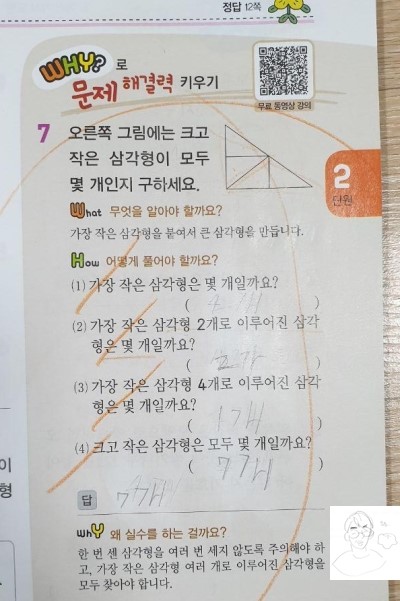 정답 12쪽
WHY? 로
문제 해결력 키우기
무료 동영상 강의
7 오른쪽 그림에는 크고
작은 삼각형이 모두
몇 개인지 구하세요.
2
단원
What 무엇을 알아야 할까요?
가장 작은 삼각형을 붙여서 큰 삼각형을 만듭니다.
How 어떻게 풀어야 할까요?
(1) 가장 작은 삼각형은 몇 개일까요?
( 4개 )
(2) 가장 작은 삼각형 2개로 이루어진 삼각
형은 몇 개일까요?
( 2개 )
(3) 가장 작은 삼각형 4개로 이루어진 삼각
형은 몇 개일까요?
( 1개 )
(4) 크고 작은 삼각형은 모두 몇 개일까요?
( 7개 )
답 7개
whY 왜 실수를 하는 걸까요?
한 번 센 삼각형을 여러 번 세지 않도록 주의해야 하
고, 가장 작은 삼각형 여러 개로 이루어진 삼각형을
모두 찾아야 합니다.
이
형